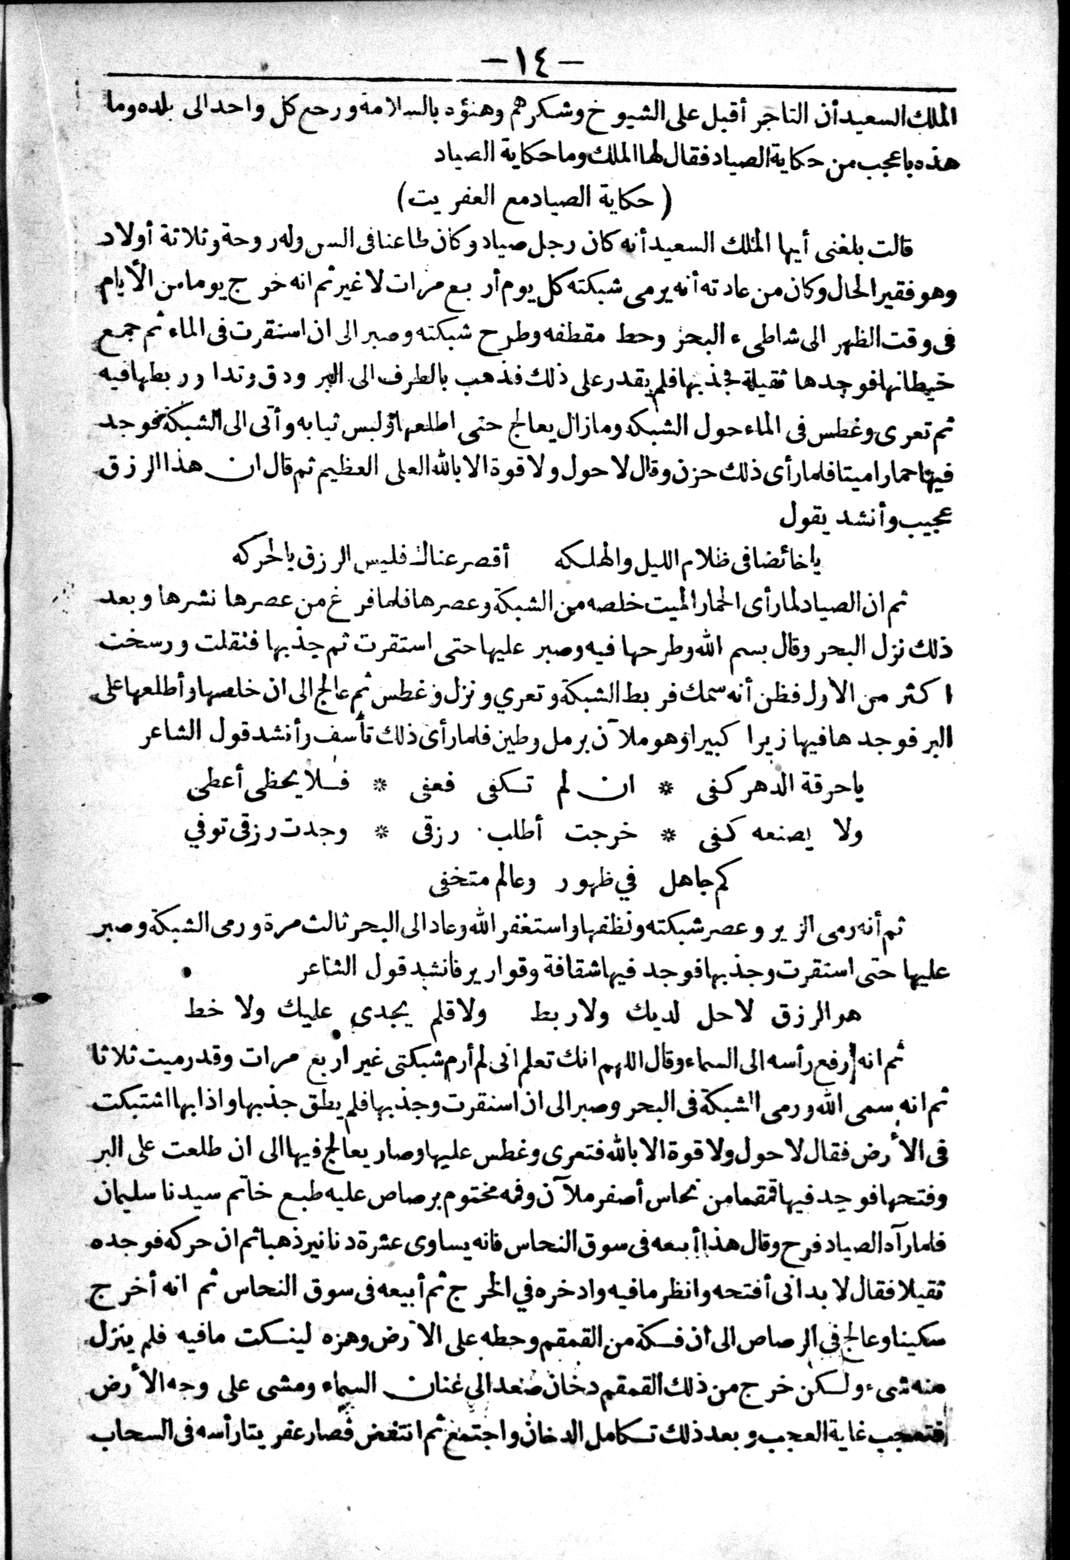 - ١٤ -
الملك السعيد أن التاجر أقبل على الشيوخ وشكرهم وهنؤه بالسلامة ورجع كل واحد الى بلده وما
هذه باعجب من حكاية الصياد فقال لها الملك وما حكاية الصياد
(حكاية الصياد مع العفريت)
قالت بلغنى أيها الملك السعيد أنه كان رجل صياد وكان طاعنا فى السن وله زوجة وثلاثة أولاد
وهو فقير الحال وكان من عادته أنه يرمى شبكته كل يوم أربع مرات لا غير ثم انه خرج يوما من الأيام
فى وقت الظهر الى شاطىء البحر وحط مقطفه وطرح شبكته وصبر الى ان استقرت فى الماء ثم جمع
خيطانها فوجدها ثقيلة فجذبها فلم يقدر على ذلك فذهب بالطرف الى البر ودق وتدا وربطها فيه
ثم تعرى وغطس فى الماء حول الشبكة ومازال يعالج حتى اطلعها ولبس ثيابه وأتى الى الشبكة فوجد
فيها حمارا ميتا فلما رأى ذلك حزن وقال لا حول ولا قوة الا بالله العلى العظيم ثم قال ان هذا الرزق
عجيب وأنشد يقول
ياخائضا فى ظلام الليل والهلكه أقصر عناك فليس الرزق بالحركه
ثم ان الصياد لما رأى الحمار الميت خلصه من الشبكة وعصرها فلما فرغ من عصرها نشرها وبعد
ذلك نزل البحر وقال بسم الله وطرحها فيه وصبر عليها حتى استقرت ثم جذبها فثقلت ورسخت
اكثر من الاول فظن أنه سمك فربط الشبكة وتعري ونزل وغطس ثم عالج الى ان خلصها وأطلعها على
البر فوجد هافيها زيرا كبيرا وهو ملآن برمل وطين فلما رأى ذلك تأسف وأنشد قول الشاعر
ياحرقة الدهر كفى * ان لم تكفى فعفى * فلا يحظى أعطى
ولا يصنعه كفى * خرجت أطلب رزقى * وجدت رزقى توفي
كم جاهل في ظهور وعالم متخفى
ثم أنه رمى الزير وعصر شبكته ونظفها واستغفر الله وعاد الى البحر ثالث مرة ورمى الشبكة وصبر
عليها حتى استقرت وجذبها فوجد فيها شقافة وقوارير فانشد قول الشاعر
هو الرزق لا حل لديك ولا ربط ولا قلم يجدى عليك ولا خط
ثم انه رفع رأسه الى السماء وقال اللهم انك تعلم انى لم أرم شبكتى غير أربع مرات وقد رميت ثلاثا
ثم انه سمى الله ورمى الشبكة فى البحر وصبر الى ان استقرت وجذبها فلم يطق جذبها واذا بها اشتبكت
فى الأرض فقال لا حول ولا قوة الا بالله فتعرى وغطس عليها وصار يعالج فيها الى ان طلعت على البر
وفتحها فوجد فيها قمقما من نحاس أصفر ملآن وفمه مختوم برصاص عليه طبع خاتم سيدنا سليمان
فلما رآه الصياد فرح وقال هذا أبيعه فى سوق النحاس فانه يساوى عشرة دنانير ذهبا ثم ان حركه فوجده
ثقيلا فقال لا بد انى أفتحه وانظر ما فيه وادخره في الخرج ثم أبيعه فى سوق النحاس ثم انه أخرج
سكينا وعالج في الرصاص الى ان فكة من القمقم وحطه على الأرض وهزه لينكت مافيه فلم ينزل
منه شىء ولكن خرج من ذلك القمقم دخان صعد الي عنان السماء ومشى على وجه الأرض
فتعجب غاية العجب وبعد ذلك تكامل الدخان واجتمع ثم انتفض فصار عفريتا رأسه فى السحاب